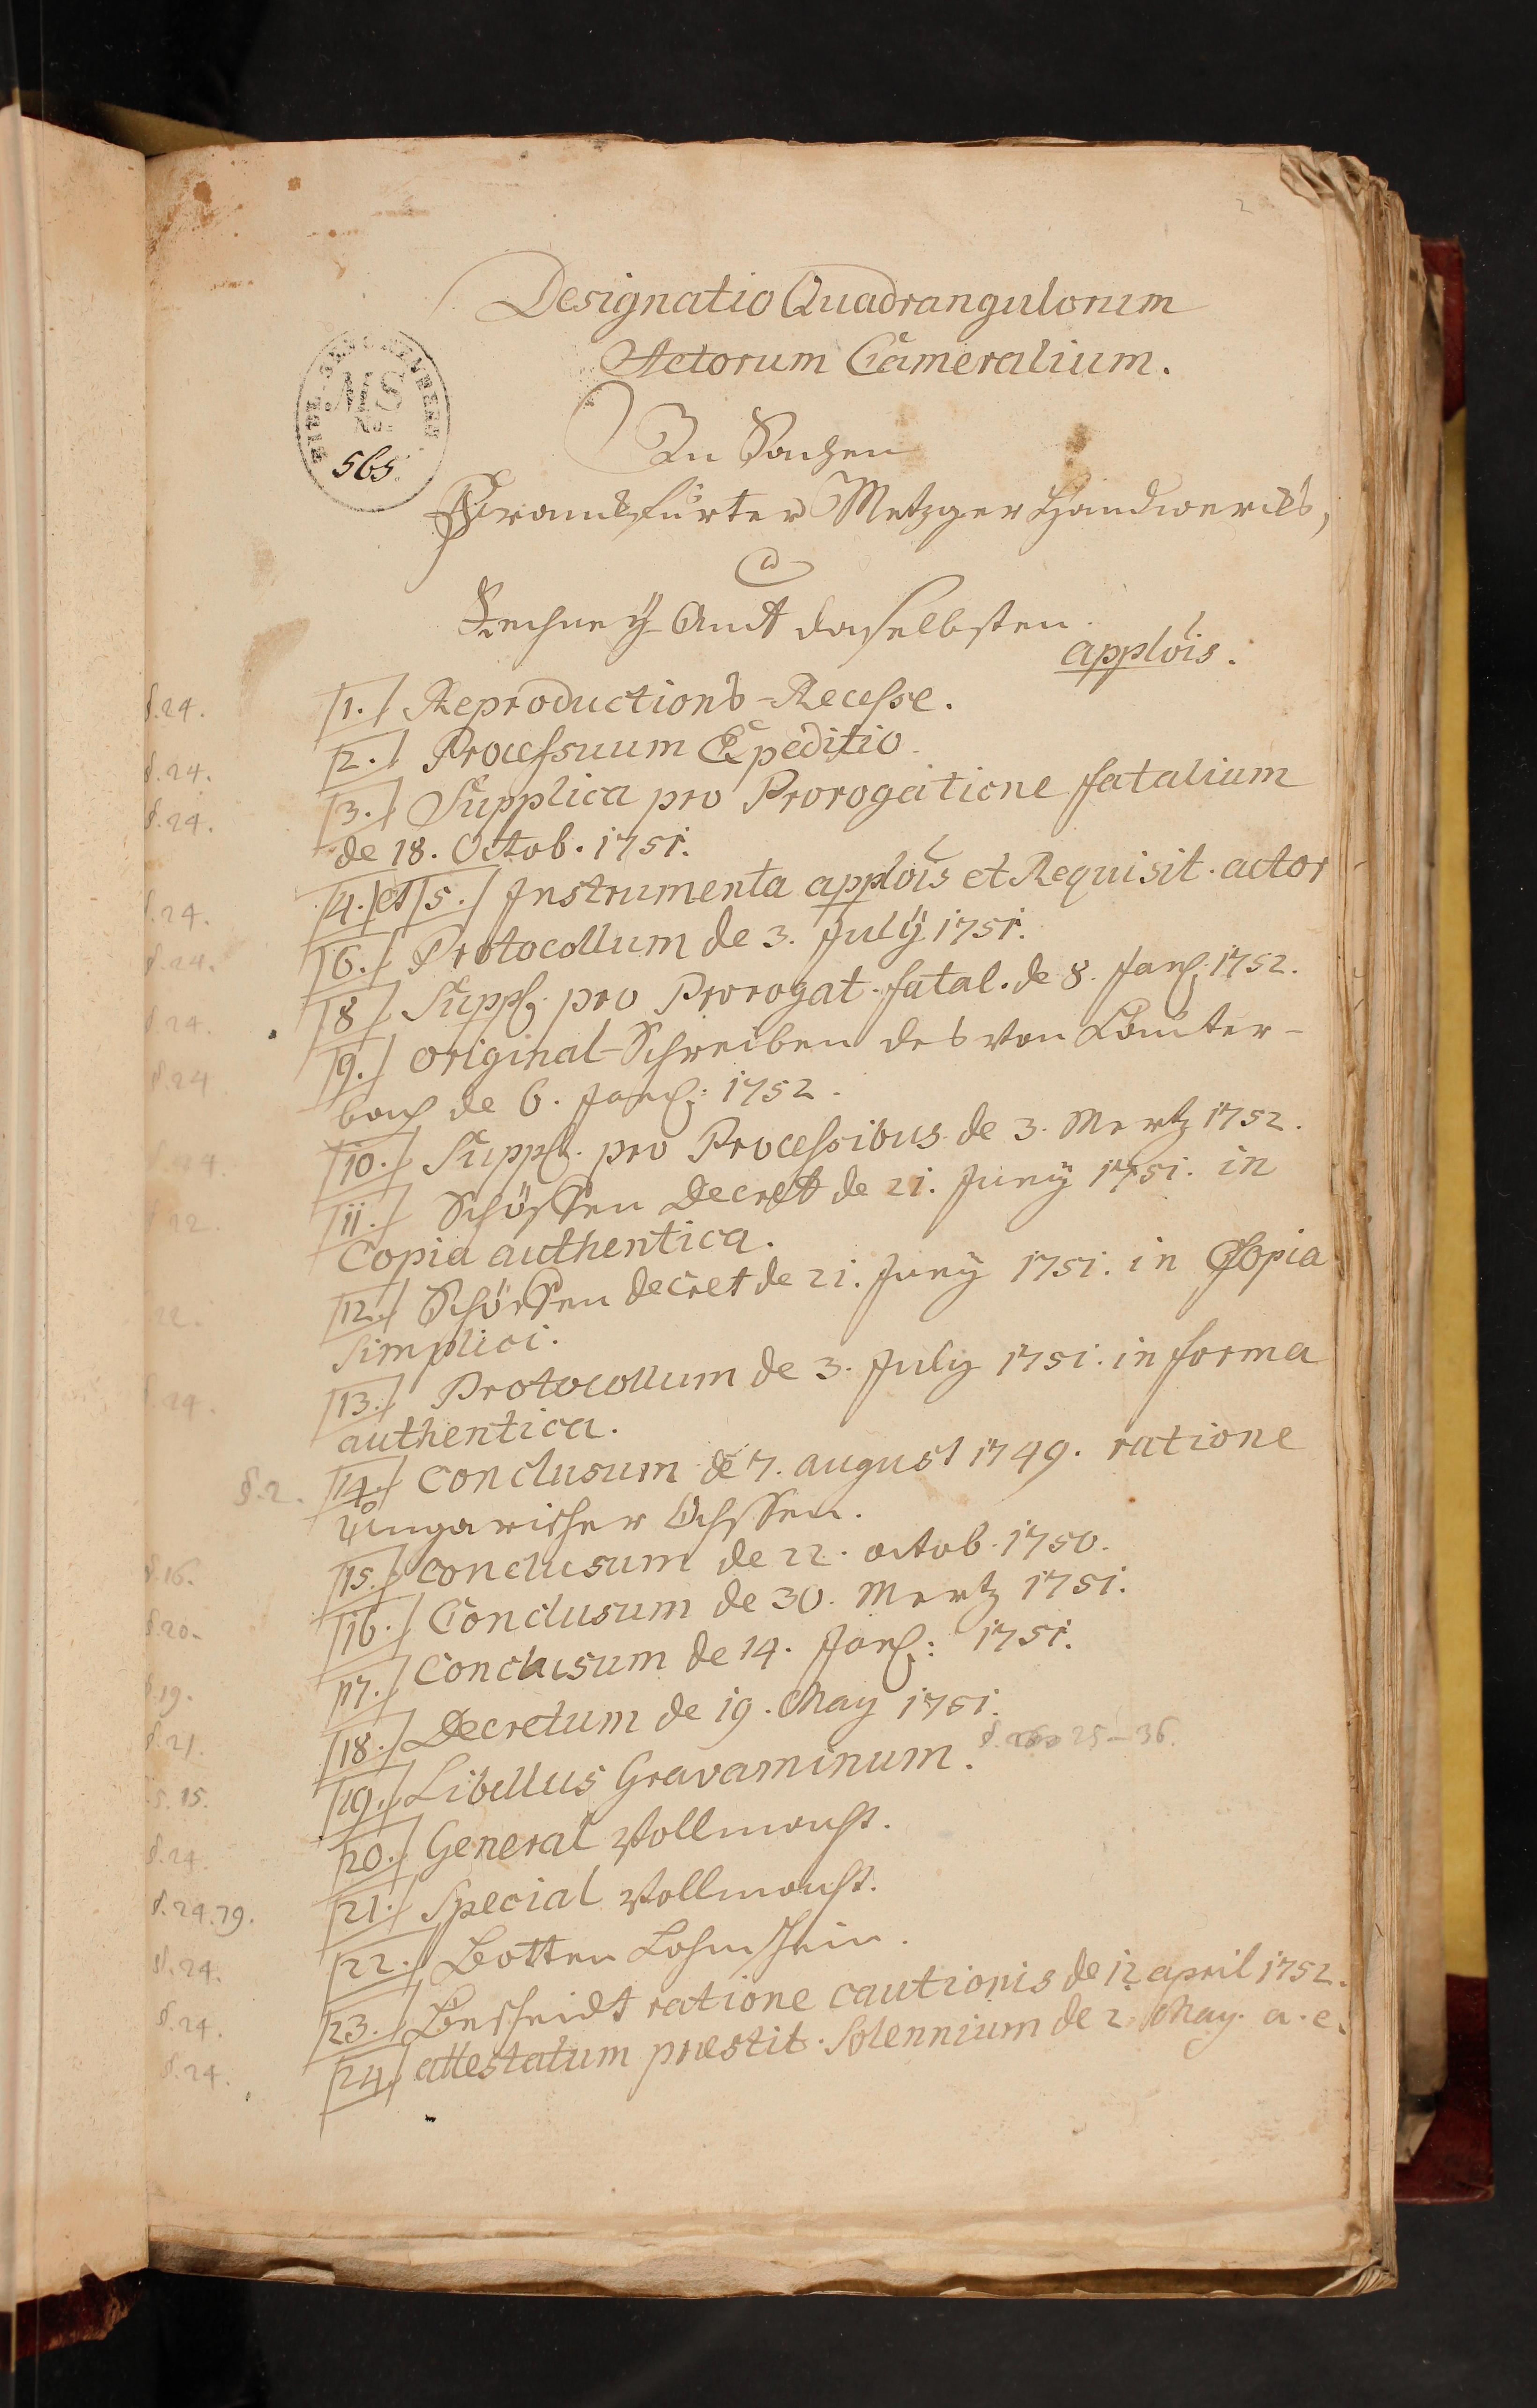 2
Designatio Quadrangulorum
Actorum Cameralium.
MS
No.
565.
In Sachen
Franckfurter Metzger Handwercks,
a
Rechney Amt daselbsten
applõis.
§.24. [1.] Reproductions-Recesse.
§.24. [2.] Processuum Expeditio.
§.24. [3.] Supplica pro Prorogatione fatalium
de 18. Octob. 1751.
§.24. [4.] et [5.] Instrumenta applõis et Requisit. actor
§.24. [6.] Protocollum de 3. Julÿ 1751.
§.24. [8] Suppl. pro Prorogat. fatal. de 8. Jan. 1752.
§.24 [9.] Original-Schreiben des von Lauter-
bach de 6. Jan: 1752.
§.24. [10.] Suppl. pro Processibus de 3. Mertz 1752.
§.22. [11.] Schöffen Decret de 21. Junÿ 1751. in
Copia authentica.
22. [12.] Schöffen decret de 21. Junÿ 1751. in Copia
simplici.
§.24. [13.] Protocollum de 3. July 1751. in forma
authentica.
§.2. [14.] Conclusum de 7. august 1749. ratione
Ungarischer Ochssen.
§.16. [15.] Conclusum de 22. octob. 1750.
§.20. [16.] Conclusum de 30. Mertz 1751.
§.19. [17.] Conclusum de 14. Jan: 1751.
§.21. [18.] Decretum de 19. May 1751.
§.15. [19.] Libellus Gravaminum. §. 25-36.
§.24. [20.] General Vollmacht.
§.24.79. [21.] Special Vollmacht.
§.24. [22.] Botten Lohnschein.
§.24. [23.] Bescheidt ratione cautionis de 12 april 1752.
§.24. [24.] attestatum præstit. Solennium de 2. May. a. e.